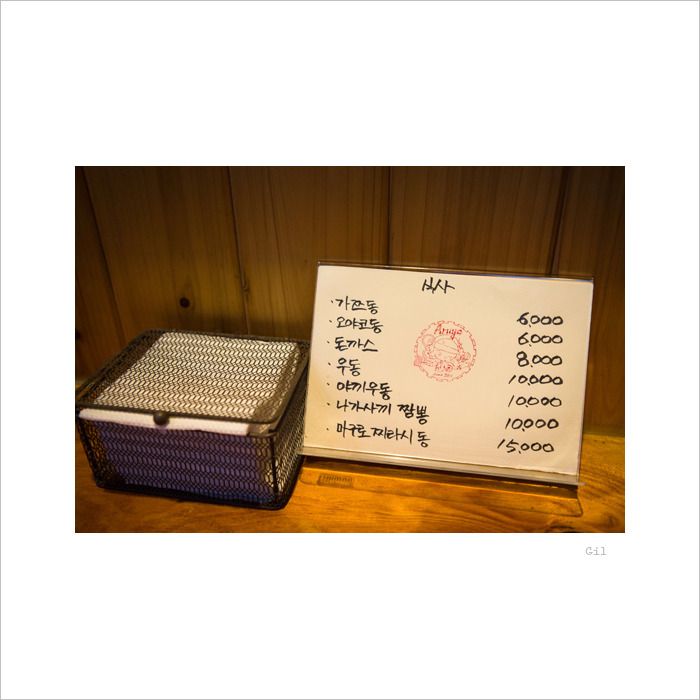 식사
· 가쯔동 6,000
· 오야코동 6,000
· 돈까스 8,000
· 우동 10,000
· 야끼우동 10,000
· 나가사끼 짬뽕 10,000
· 마구로 찌라시동 15,000
Gil